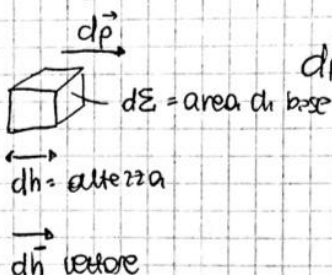 dp⃗
d
dΣ = area di base
dh = altezza
dh⃗ vettore